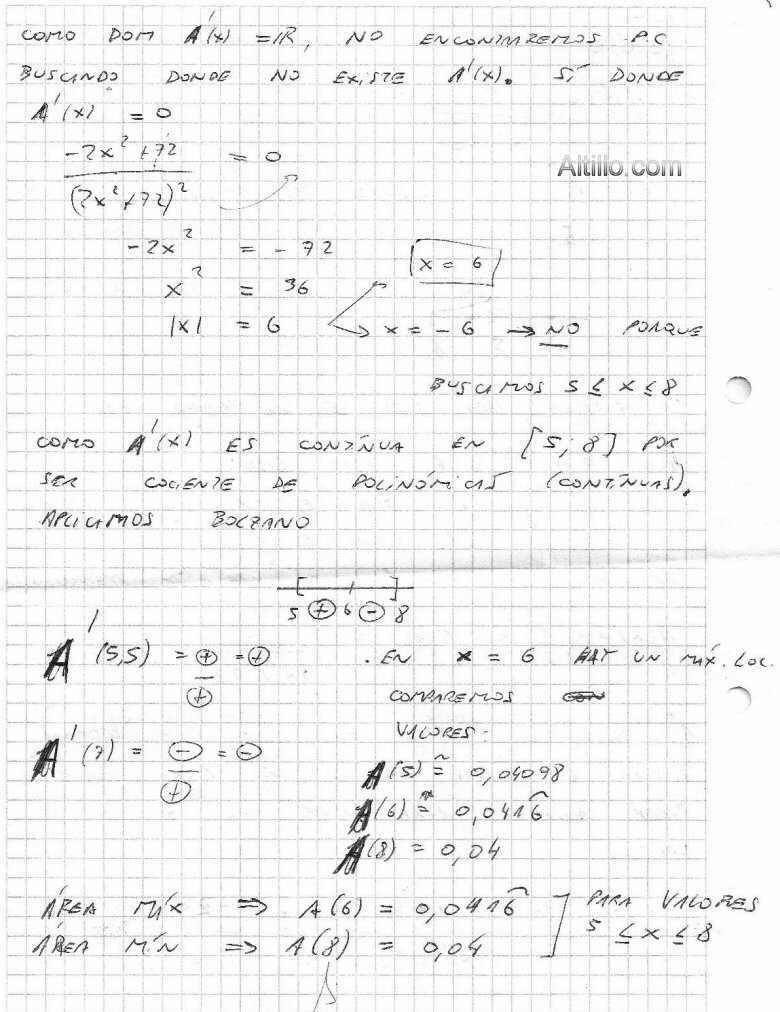 COMO DOM A'(x) = IR, NO ENCONTRAREMOS P.C
BUSCANDO DONDE NO EXISTE A'(x). SÍ DONDE
A'(x) = 0
Altillo.com
-2x² + 72 = 0
(2x² + 72)²
-2x² = -72
x = 6
x² = 36
|x| = 6 → x = -6 → NO PORQUE
BUSCAMOS 5 ≤ x ≤ 8
COMO A'(x) ES CONTÍNUA EN [5; 8] POR
SER COCIENTE DE POLINÓMICAS (CONTÍNUAS),
APLICAMOS BOLZANO
5 + 6 - 8
A'(5,5) = + = +
+
. EN x = 6 HAY UN MÁX. LOC.
COMPAREMOS
VALORES.
A'(7) = - = -
+
A(5) ≅ 0,04098
A(6) = 0,0416
A(8) = 0,04
ÁREA MÁX ⇒ A(6) = 0,0416
ÁREA MÍN ⇒ A(8) = 0,04
PARA VALORES
5 ≤ x ≤ 8